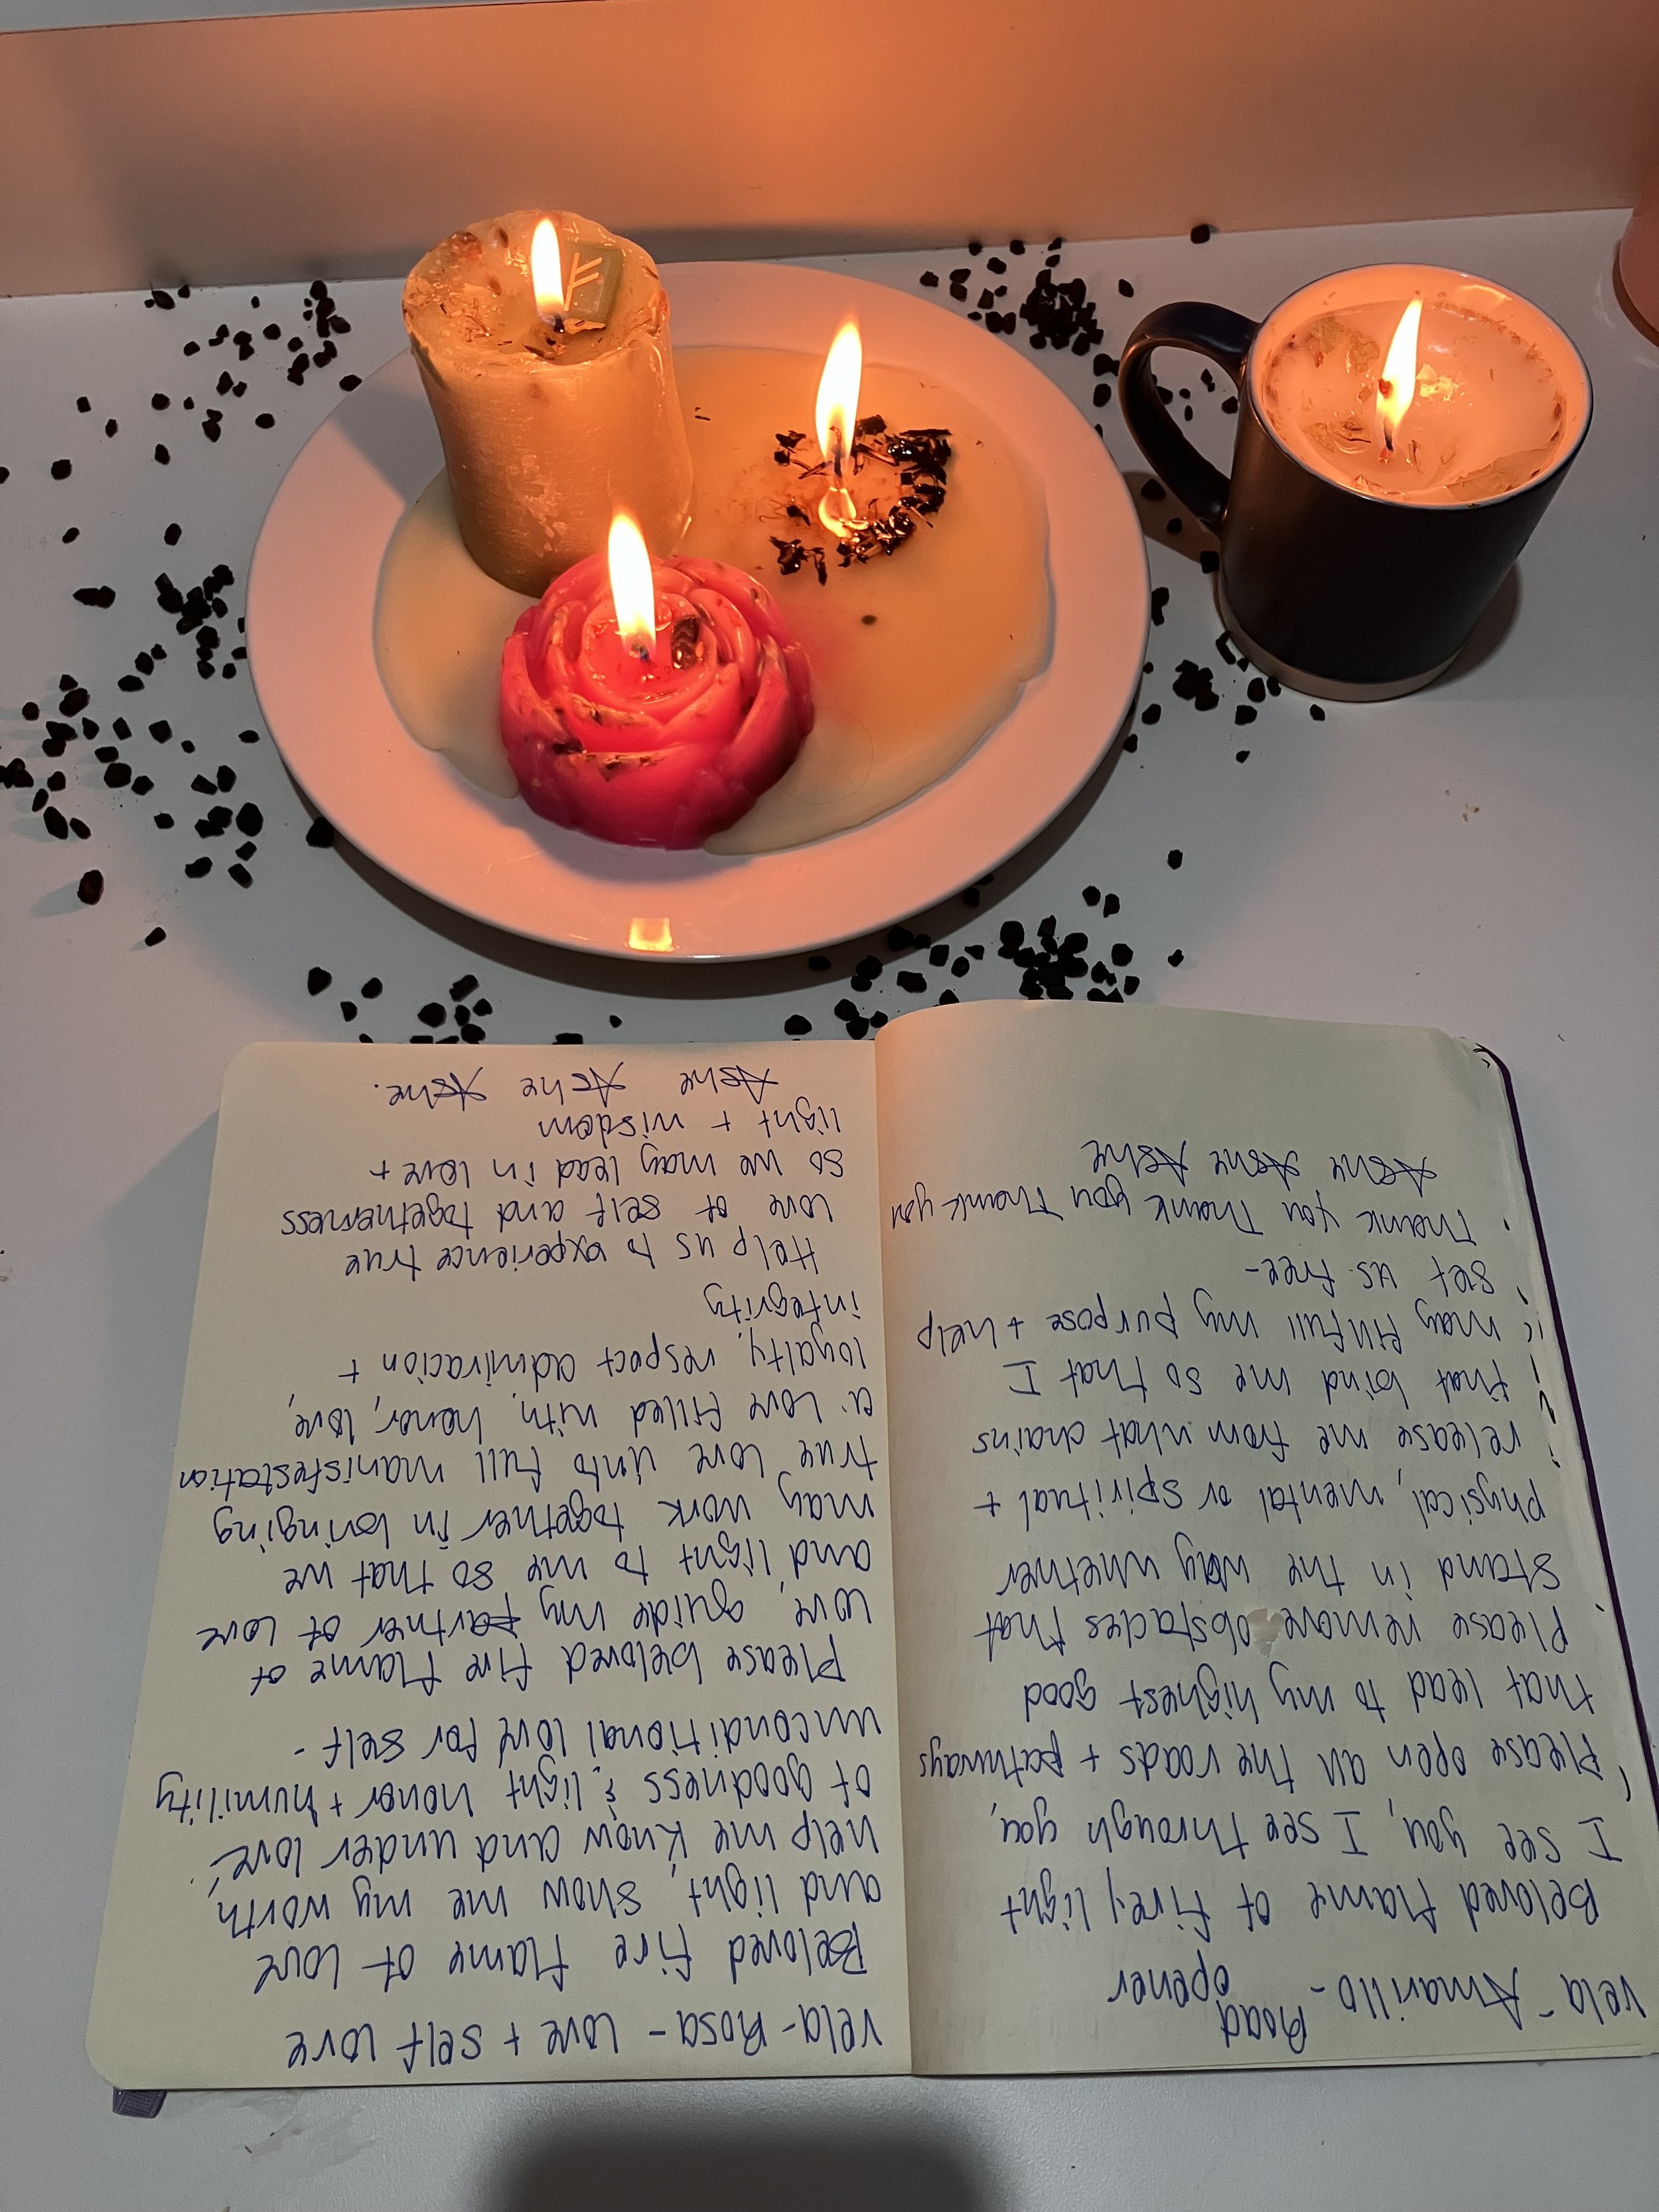 ᚠ
Vela - Amarillo - Road
opener
Beloved flame of firey light
I see you, I see through you,
Please open all the roads + pathways
that lead to my highest good
Please remove obstacles that
stand in the way whether
physical, mental or spiritual +
release me from what chains
that bind me so that I
may fulfull my purpose + help
set us free-
Thank you Thank you Thank you
Ashe Ashe Ashe
Vela-Rosa - Love + self love
Beloved fire flame of Love
and light, show me my worth,
help me know and under love,
of goodness & light honor + humility
unconditional love for self -
Please beloved fire flame of
love, guide my partner of love
and light to me so that we
may work together in bringing
true love unto full manisfestation
a love filled with, honor, love,
loyalty, respect admiracion +
integrity
Help us to experience true
love of self and togetherness
so we may lead in love +
light + wisdom
Ashe Ashe Ashe.